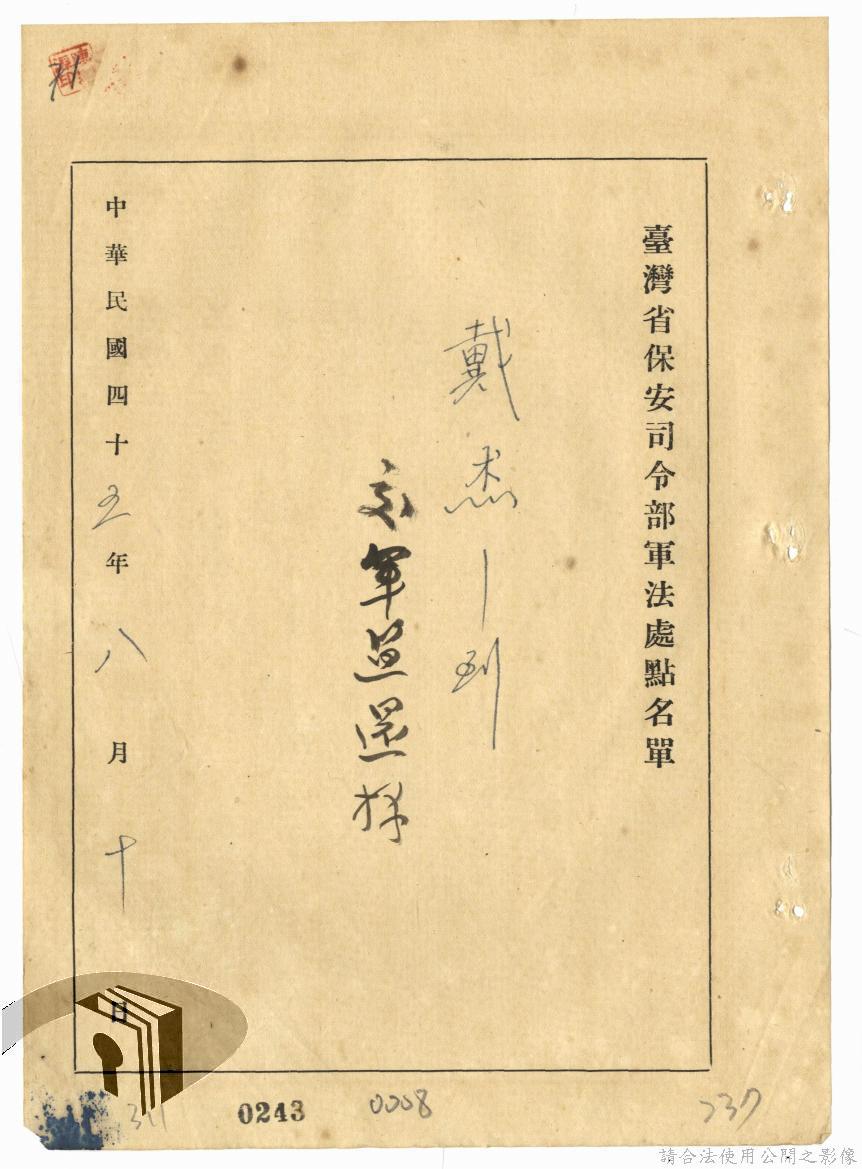 臺灣省保安司令部軍法處點名單
戴杰 到
中華民國四十五年八月十日
0243
0008
237
請合法使用公開之影像